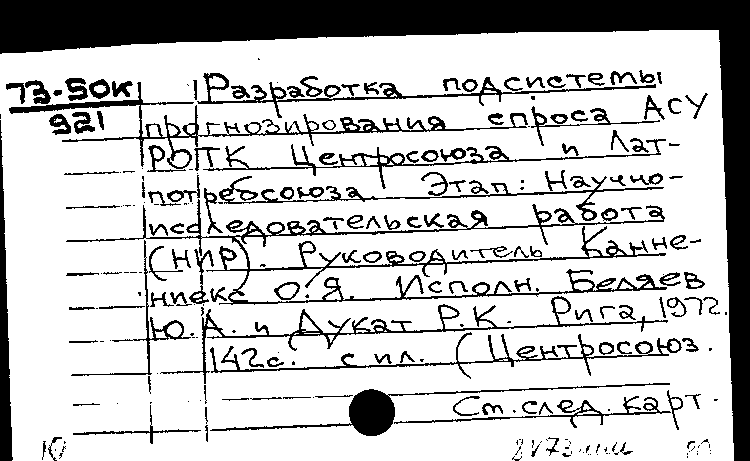 73-50К
921
Разработка подсистемы
прогнозирования спроса АСУ
РОТК Центросоюза и Лат-
потребсоюза. Этап: Научно-
исследовательская работа
(НИР). Руководитель Канне-
ниекс О.Я. Исполн. Беляев
Ю.А. и Дукат Р.К. Рига, 1972.
142с. с ил. (Центросоюз.
Ст. след. карт.
10